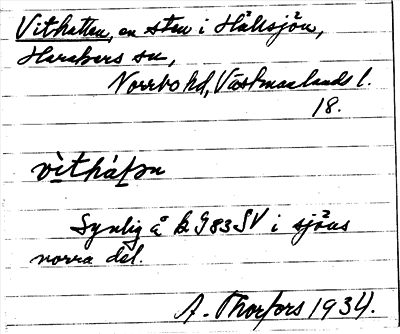 Vithatten, en sten i Hållsjön,
Harakers sn,
Norrbo hd, Västmanlands l.
18.
vìthátən
Synlig å k. 983 SV i sjöns
norra del.
A. Thorfors 1934.